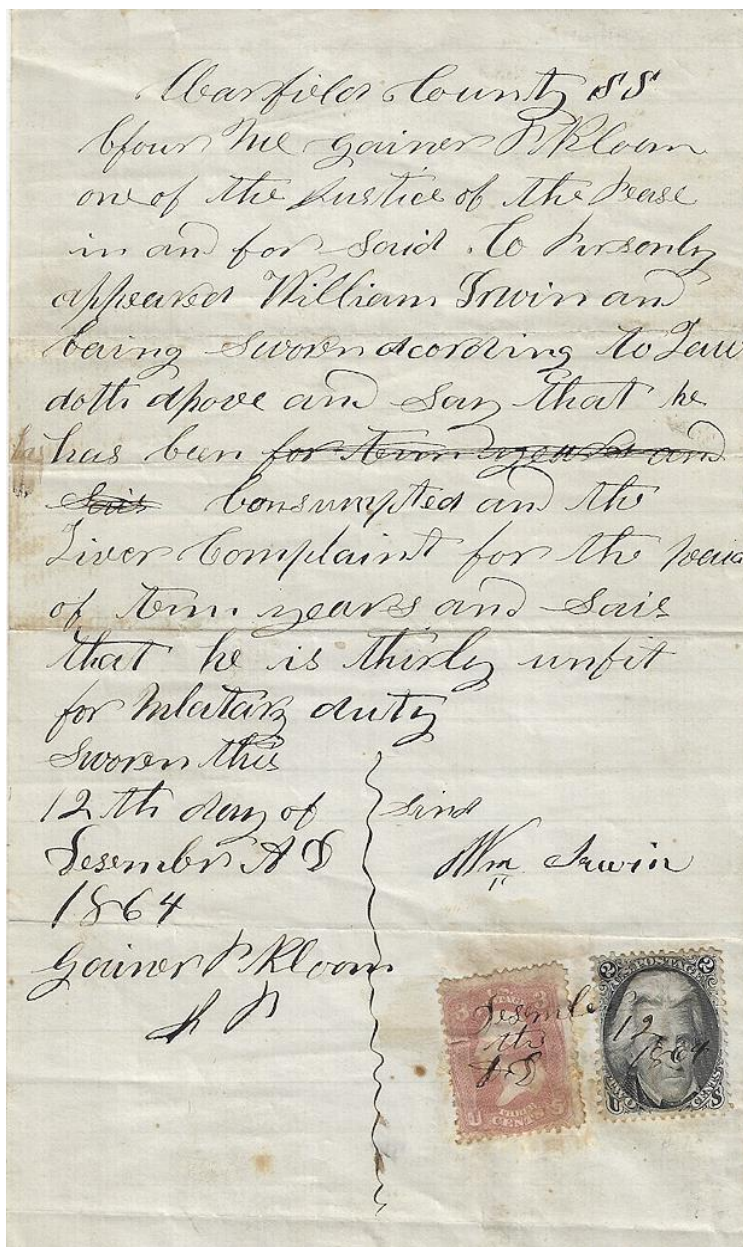 Clearfield County SS
bfour Me Gainer P. Kloom
one of the Justice of the Pease
in and for Said Co Pursonly
appeared William Irwin and
being Sworen acording to Law
doth dpove and Say that he
has been for tenn years and
Sais Consumpted and the
Liver Complaint for the
of tenn years and Sais
that he is thirly unfit
for Mlatary duty
Sworen this
12 th day of
Desember A D
1864
Gainer P Kloom
J P
Sind
Wm Irwin
Desember 12
th 1864
A D
U.S. POSTAGE
3 3
THREE
CENTS
U.S. POSTAGE
2 2